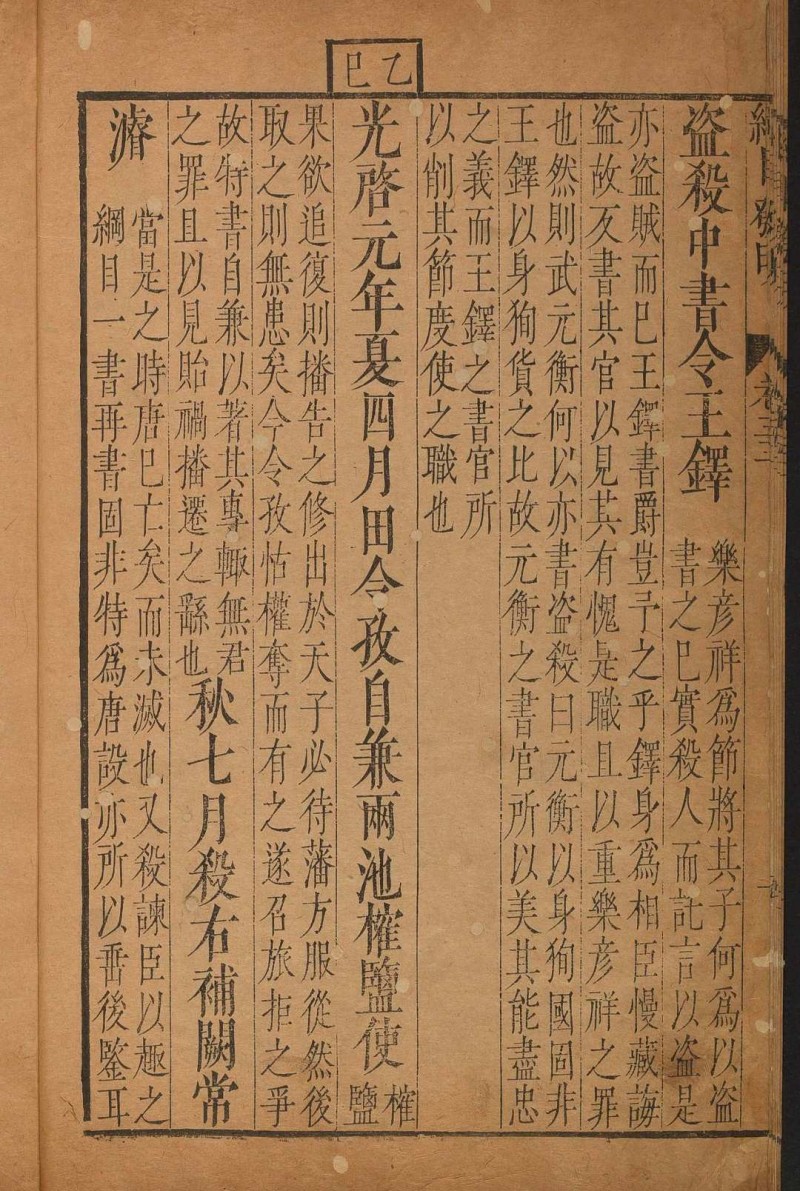 乙巳
綱目發明
盜殺中書令王鐸
樂彥祥爲節將其子何爲以盜
書之巳實殺人而託言以盜是
亦盜賊而巳王鐸書爵豈予之乎鐸身爲相臣慢藏誨
盜故反書其官以見其有愧是職且以重樂彥祥之罪
也然則武元衡何以亦書盜殺曰元衡以身狥國固非
王鐸以身狥貨之比故元衡之書官所以美其能盡忠
之義而王鐸之書官所
以削其節度使之職也
光啓元年夏四月田令孜自兼兩池榷鹽使
榷
鹽
果欲追復則播告之修出於天子必待藩方服從然後
取之則無患矣今令孜怙權奪而有之遂召旅拒之爭
故特書自兼以著其專輒無君
之罪且以見貽禍播遷之繇也
秋七月殺右補闕常
濬
當是之時唐巳亡矣而未滅也又殺諫臣以趣之
綱目一書再書固非特爲唐設亦所以垂後鑒耳